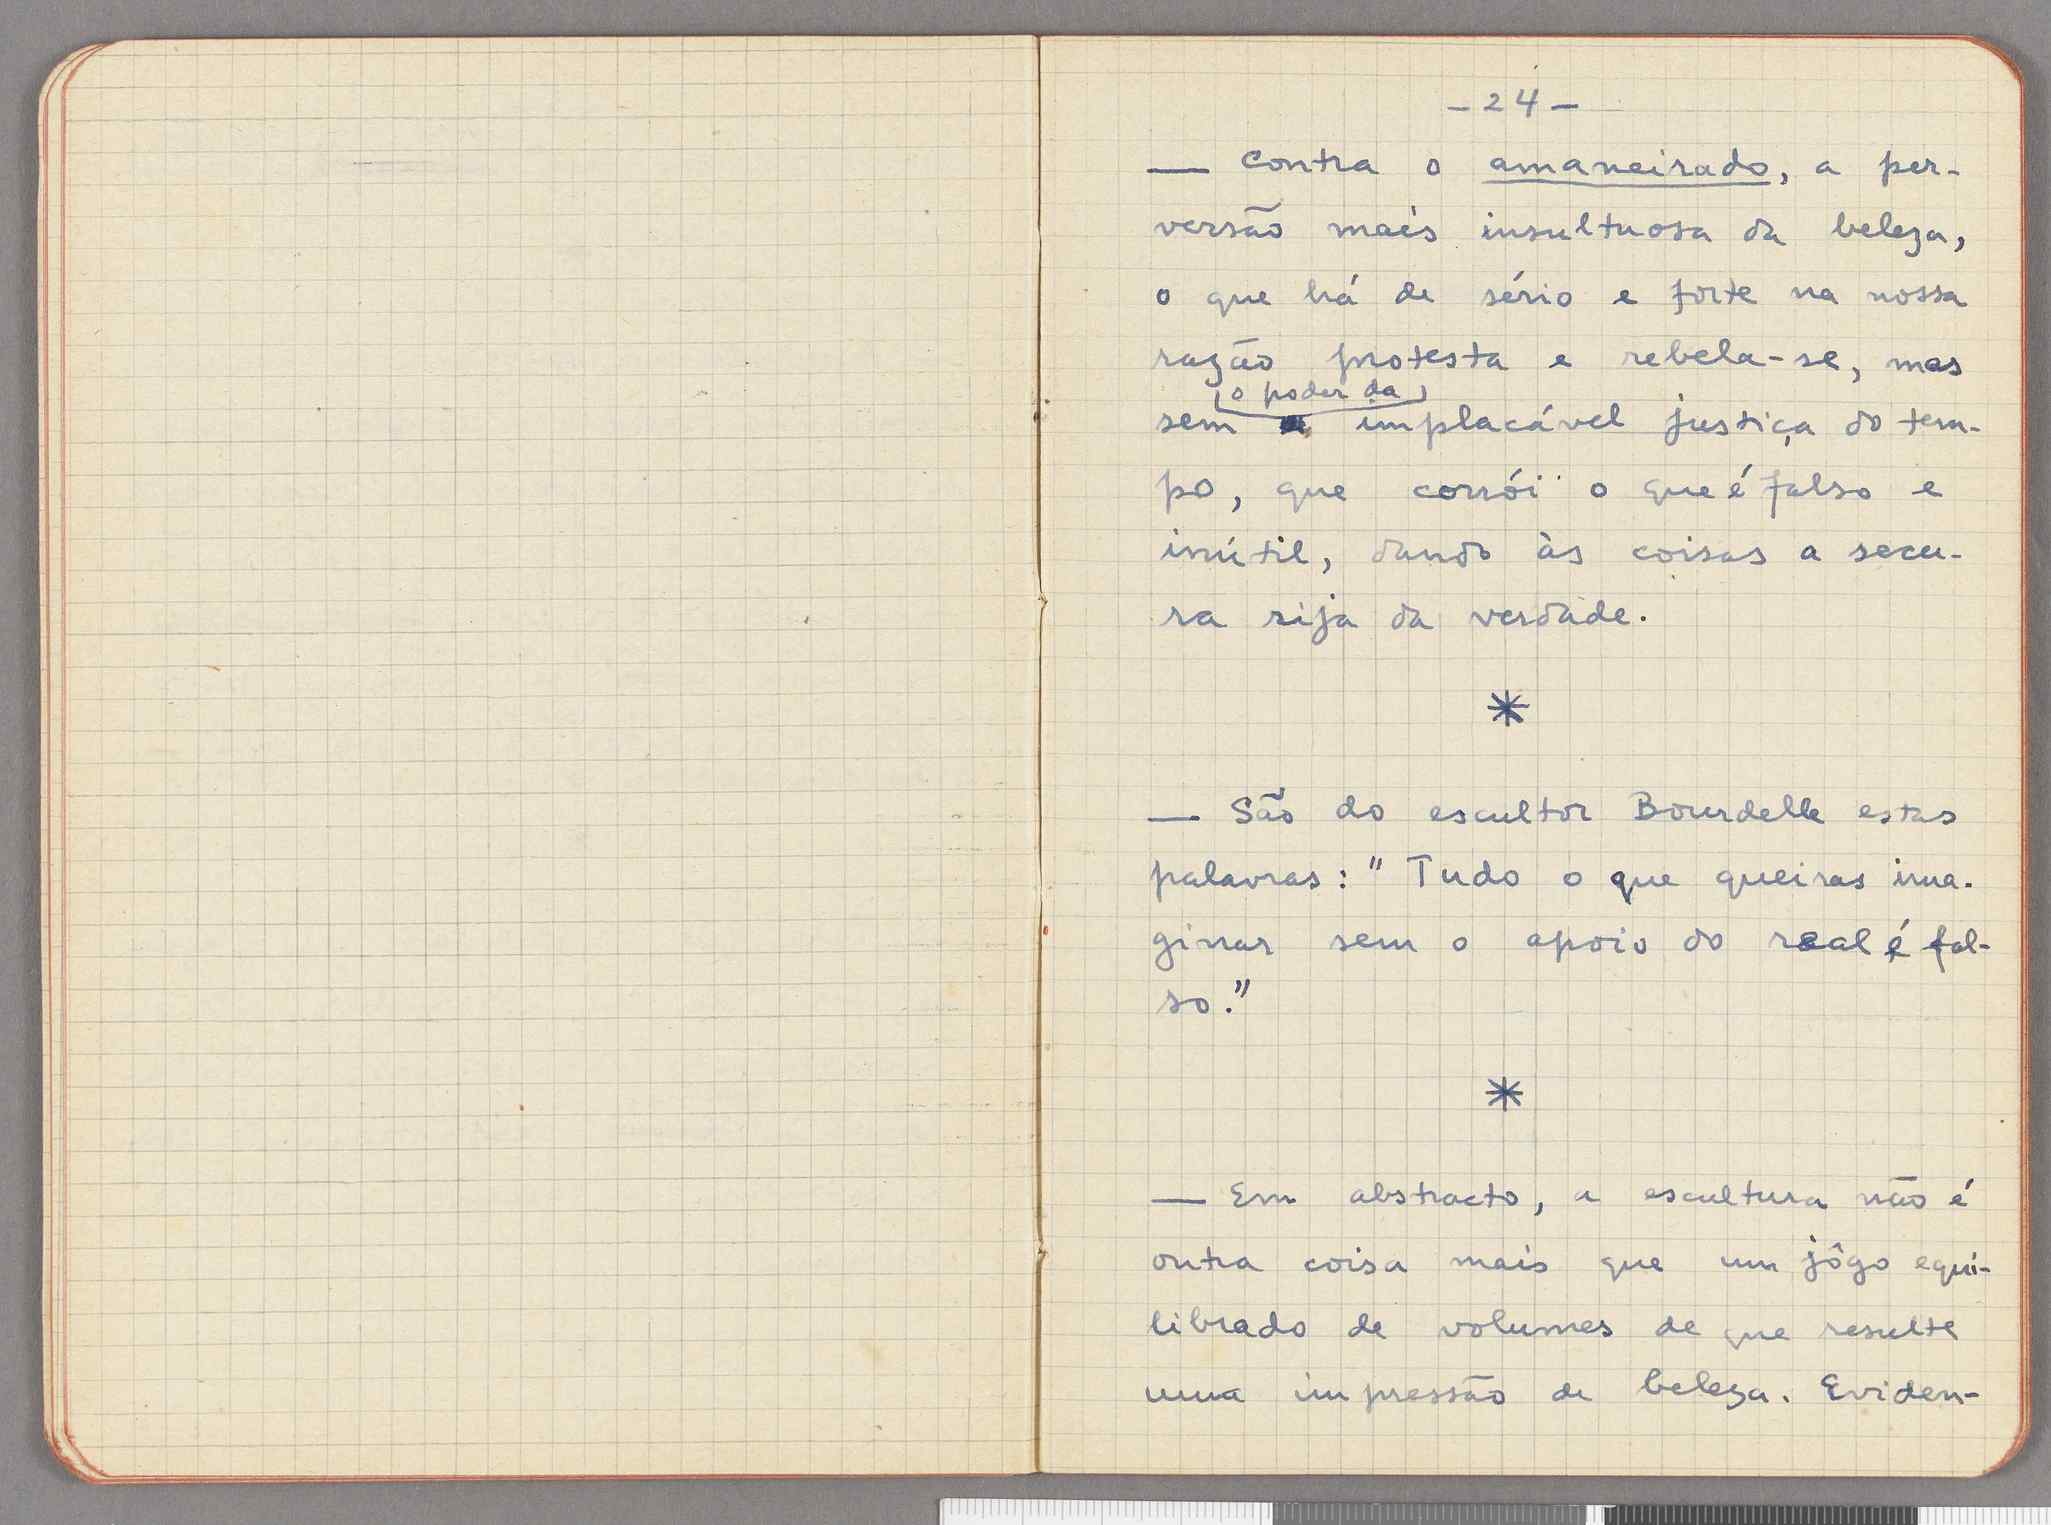 - 24 -
— Contra o amaneirado, a per-
versão mais insultuosa da beleza,
o que há de sério e forte na nossa
razão protesta e rebela-se, mas
o poder da
sem implacável justiça do tem-
po, que corrói o que é falso e
inútil, dando às coisas a secu-
ra rija da verdade.
*
— São do escultor Bourdelle estas
palavras: "Tudo o que queiras ima-
ginar sem o apoio do real é fal-
so."
*
— Em abstracto, a escultura não é
outra coisa mais que um jôgo equi-
librado de volumes de que resulte
uma impressão de beleza. Eviden-